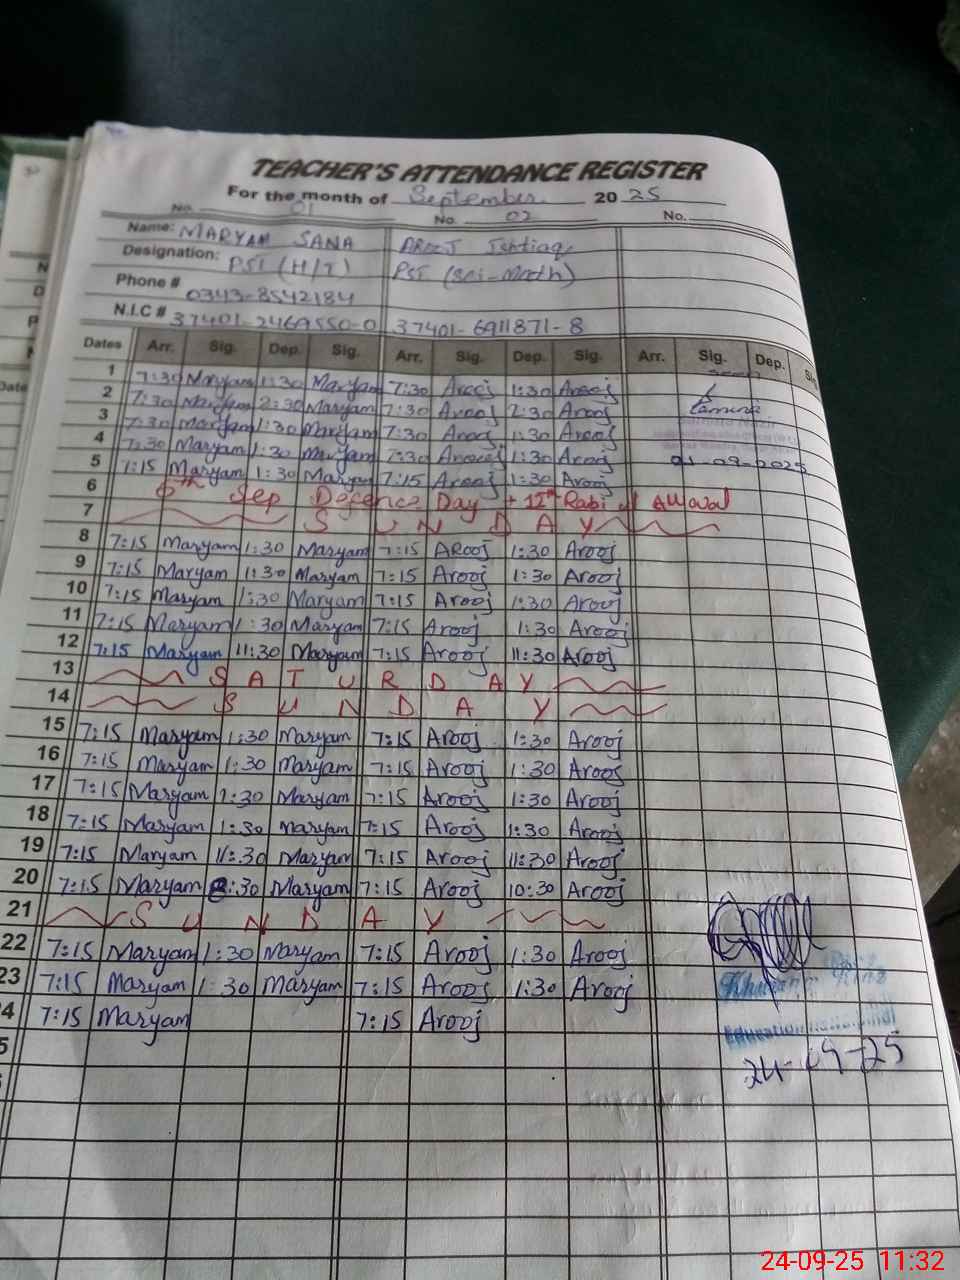 TEACHER'S ATTENDANCE REGISTER
For the month of September 2025
No. 01 No. 02 No.
Name: MARYAM SANA AROOJ Ishtiaq
Designation: PST (H/T) PST (Sci-Math)
Phone # 0343-8542184
N.I.C # 37401-2469550-0 37401-6911871-8
Dates Arr. Sig. Dep. Sig. Arr. Sig. Dep. Sig. Arr. Sig. Dep. Sig.
1 7:30 Maryam 1:30 Maryam 7:30 Arooj 1:30 Arooj
2 7:30 Maryam 2:30 Maryam 7:30 Arooj 2:30 Arooj
3 7:30 Maryam 1:30 Maryam 7:30 Arooj 1:30 Arooj
4 7:30 Maryam 1:30 Maryam 7:30 Arooj 1:30 Arooj
5 7:15 Maryam 1:30 Maryam 7:15 Arooj 1:30 Arooj 01-09-2025
6 6th Sep Defence Day + 12th Rabi ul Awal
7 SUNDAY
8 7:15 Maryam 1:30 Maryam 7:15 AROOJ 1:30 Arooj
9 7:15 Maryam 1:30 Maryam 7:15 Arooj 1:30 Arooj
10 7:15 Maryam 1:30 Maryam 7:15 Arooj 1:30 Arooj
11 7:15 Maryam 1:30 Maryam 7:15 Arooj 1:30 Arooj
12 7:15 Maryam 11:30 Maryam 7:15 Arooj 11:30 Arooj
13 SATURDAY
14 SUNDAY
15 7:15 Maryam 1:30 Maryam 7:15 Arooj 1:30 Arooj
16 7:15 Maryam 1:30 Maryam 7:15 Arooj 1:30 Arooj
17 7:15 Maryam 1:30 Maryam 7:15 Arooj 1:30 Arooj
18 7:15 Maryam 1:30 Maryam 7:15 Arooj 1:30 Arooj
19 7:15 Maryam 11:30 Maryam 7:15 Arooj 11:30 Arooj
20 7:15 Maryam 8:30 Maryam 7:15 Arooj 10:30 Arooj
21 SUNDAY
22 7:15 Maryam 1:30 Maryam 7:15 Arooj 1:30 Arooj
23 7:15 Maryam 1:30 Maryam 7:15 Arooj 1:30 Arooj
4 7:15 Maryam 7:15 Arooj
Education
5 24-09-25
24-09-25 11:32